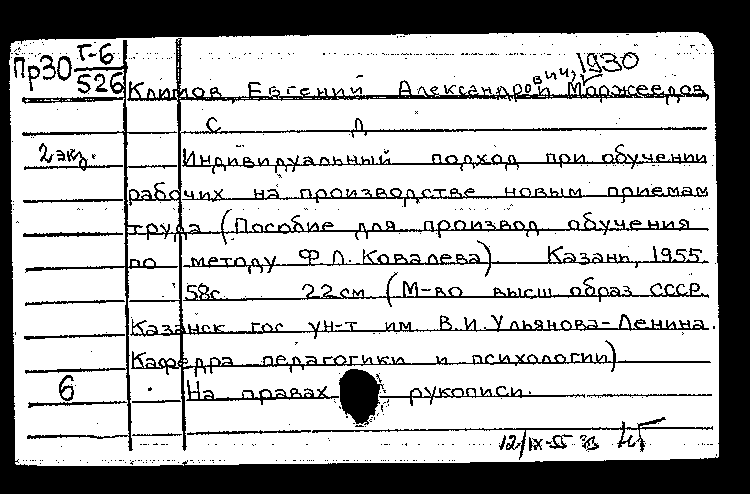 Пр30 Г-6
526
1930
Климов, Евгений Александрович,
С Л
2 экз. Индивидуальный подход при обучении
рабочих на производстве новым приемам
труда (Пособие для производ обучения
по методу Ф.Л. Ковалева) Казань, 1955.
58с. 22см (М-во высш образ СССР.
Казанск гос ун-т им В.И. Ульянова-Ленина.
Кафедра педагогики и психологии)
6 На правах рукописи.
12/IX-55